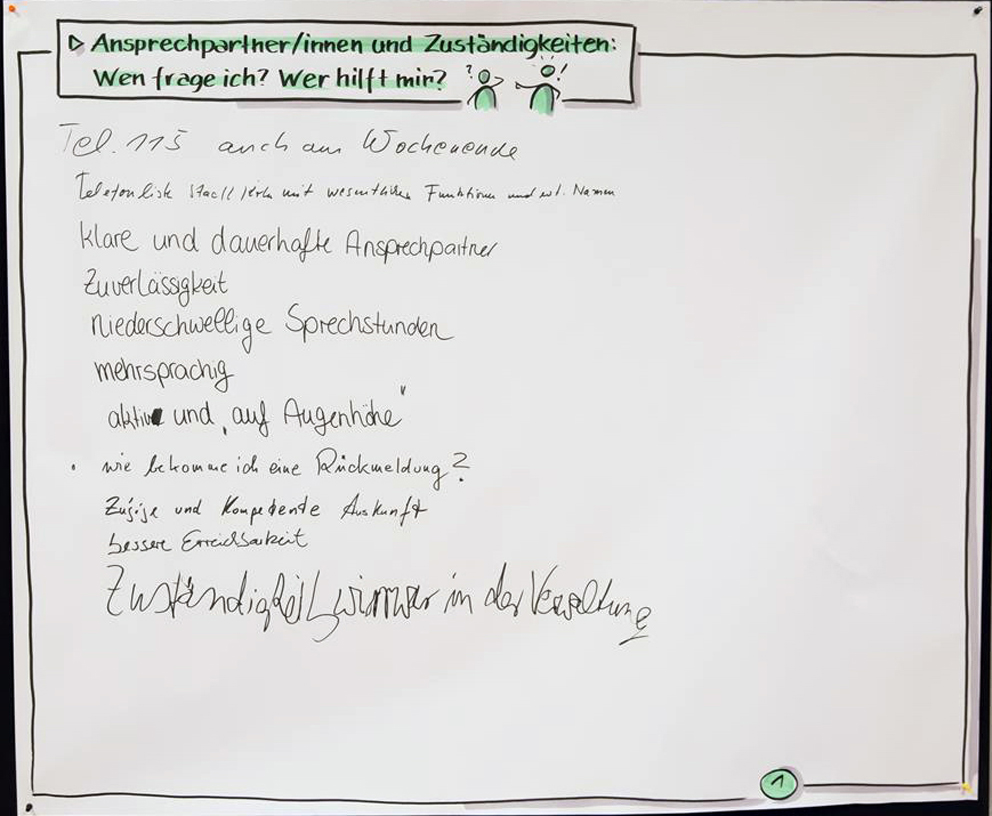 Ansprechpartner/innen und Zuständigkeiten:
Wen frage ich? Wer hilft mir?
? !
Tel. 115 auch am Wochenende
Telefonliste mit wesentlichen Funktionen und evt. Namen
klare und dauerhafte Ansprechpartner
Zuverlässigkeit
niederschwellige Sprechstunden
mehrsprachig
aktiv und „auf Augenhöhe"
• wie bekomme ich eine Rückmeldung?
Zügige und kompetente Auskunft
bessere Erreichbarkeit
Zuständigkeitswirrwar in der Verwaltung
1